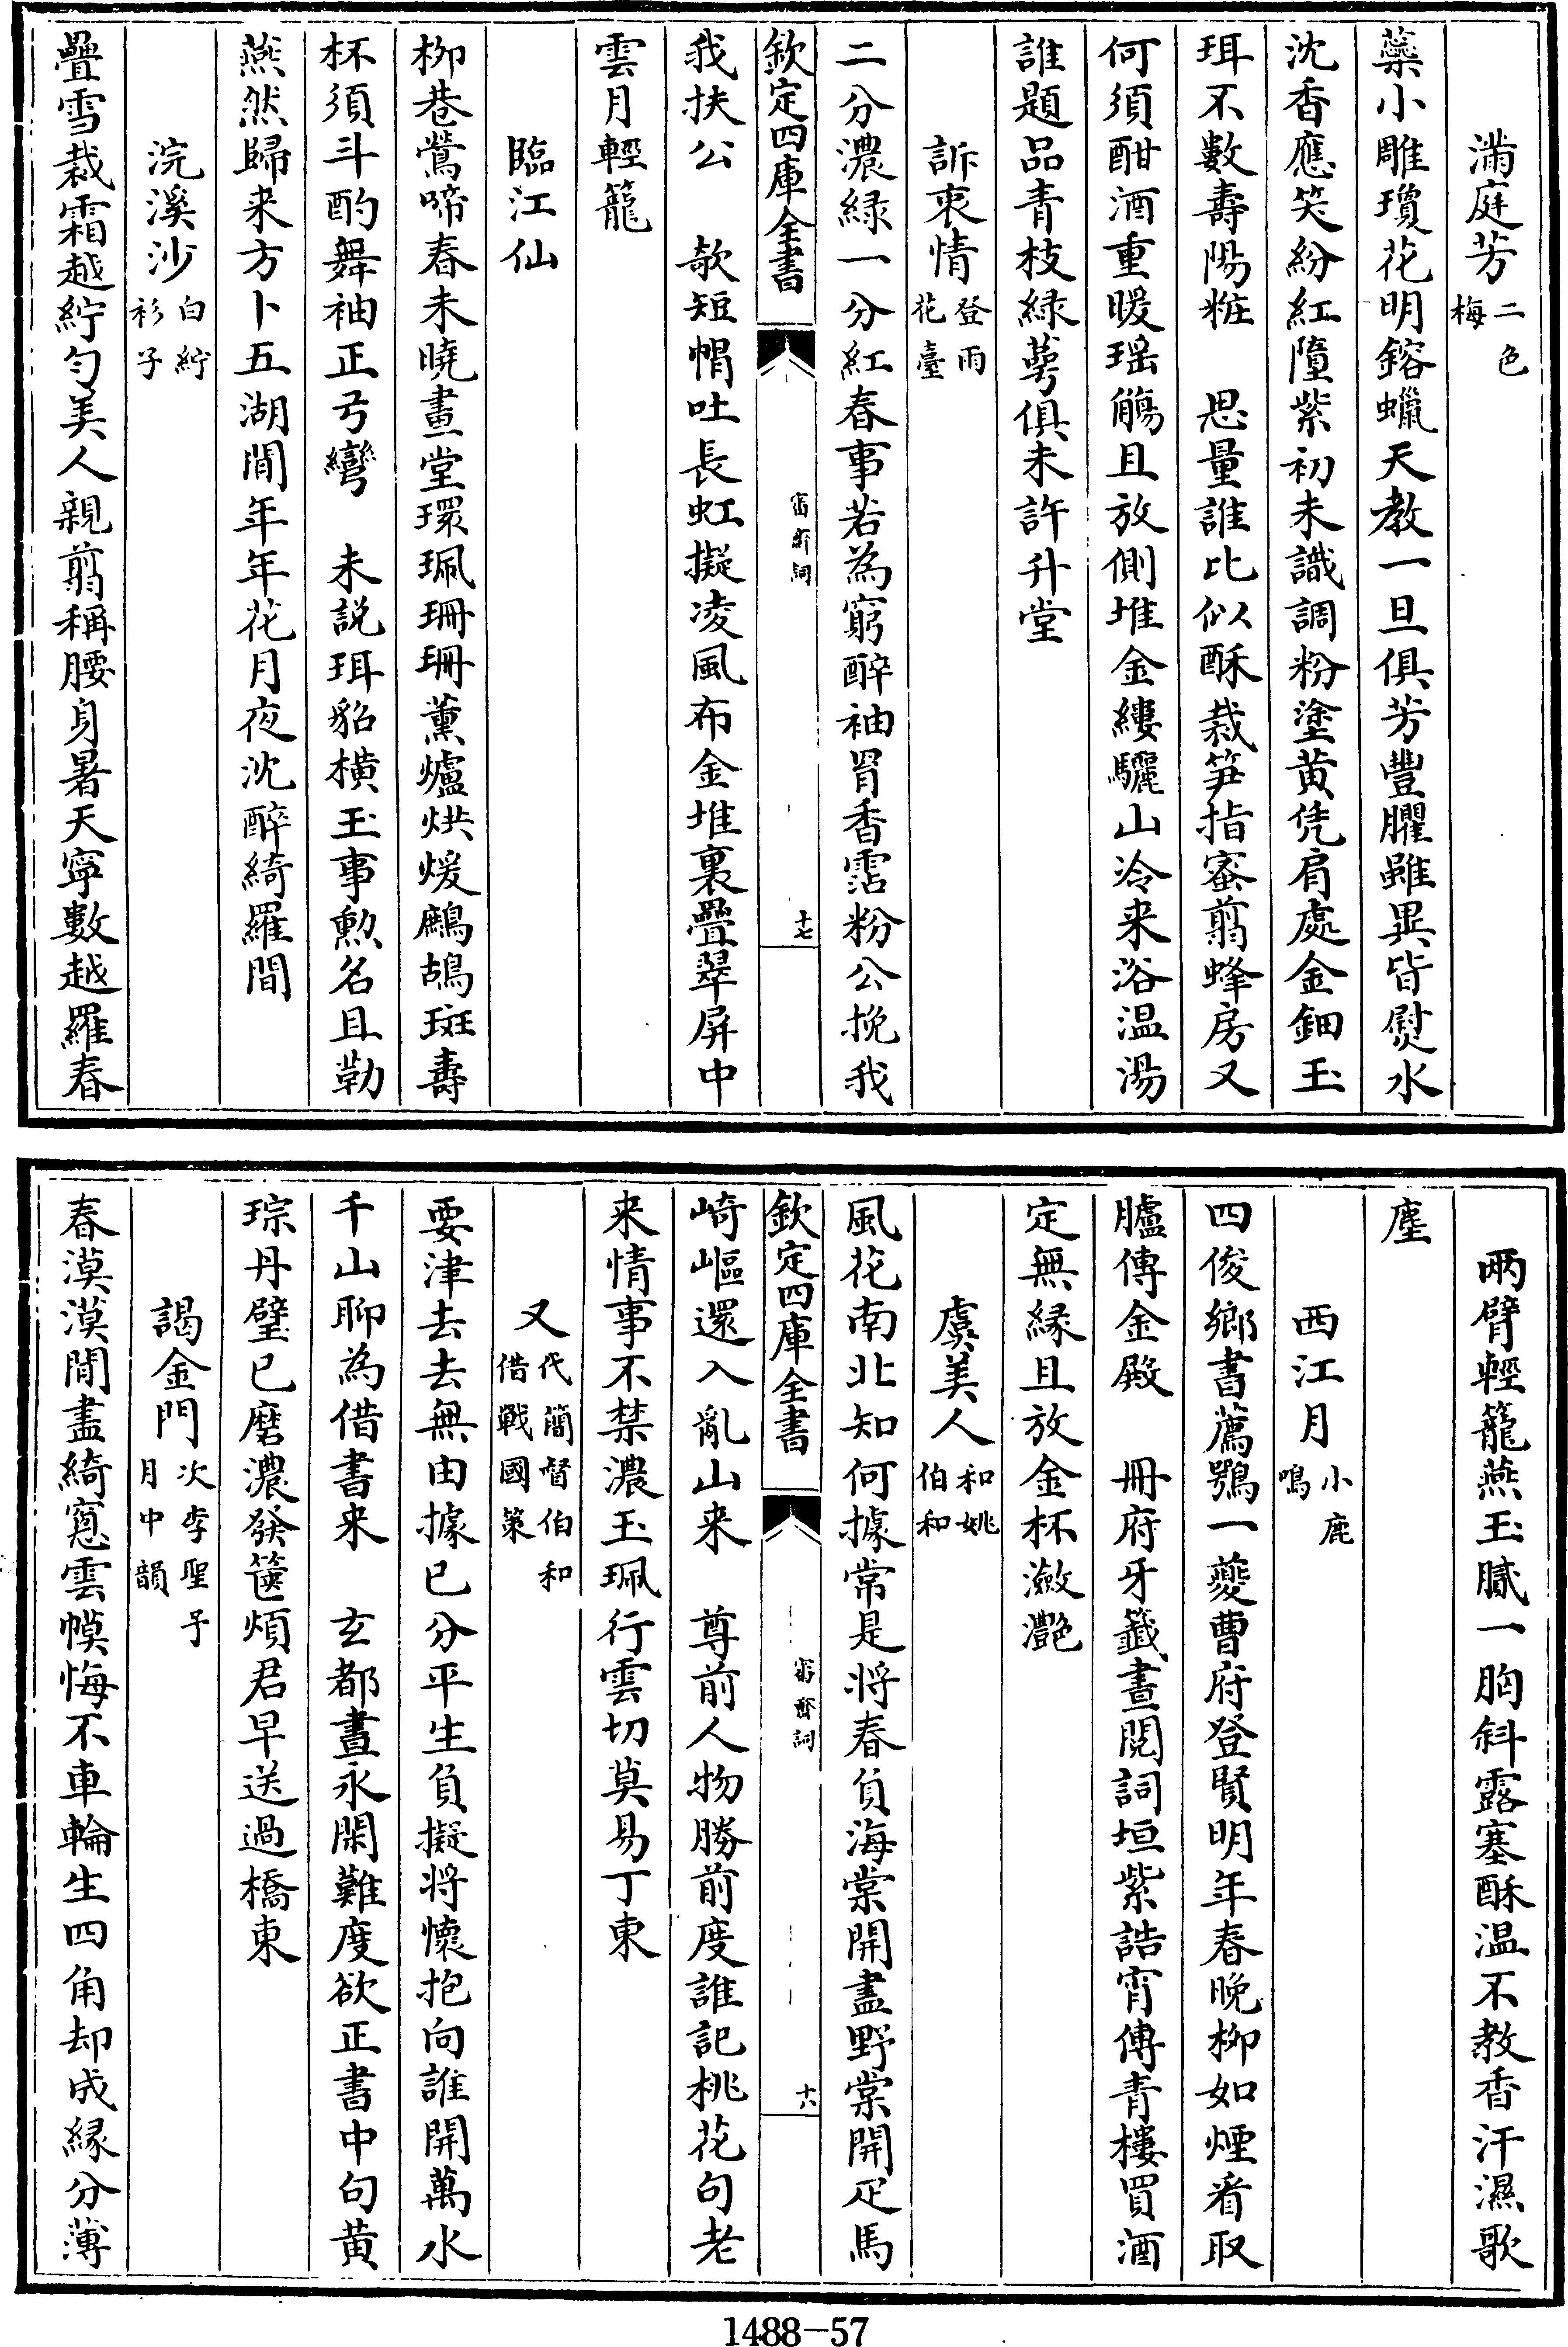 滿庭芳二色梅
蘂小雕瓊花明鎔蠟天教一旦俱芳豐臞雖異皆熨水
沈香應笑紛紅墮紫初未識調粉塗黄凭肩處金鈿玉
珥不數壽陽粧　思量誰比似酥裁笋指蜜翦蜂房又
何須酣酒重暖瑶觴且放側堆金縷驪山冷来浴温湯
誰題品青枝緑萼俱未許升堂
訴衷情登雨花臺
二分濃緑一分紅春事若為窮醉袖胃香霑粉公挽我
欽定四庫全書
審齋詞
十七
我扶公　欹短帽吐長虹擬凌風布金堆裏疊翠屏中
雲月輕籠
臨江仙
柳巷鶯啼春未曉畫堂環珮珊珊薰爐烘煖鷓鴣斑壽
杯須斗酌舞袖正弓彎　未説珥貂横玉事勲名且勒
燕然歸来方卜五湖閒年年花月夜沈醉綺羅間
浣溪沙白紵衫子
疊雪裁霜越紵匀美人親翦稱腰身暑天寧數越羅春
兩臂輕籠燕玉膩一胸斜露塞酥温不教香汗濕歌
塵
西江月小鹿鳴
四俊鄉書薦鶚一夔曹府登賢明年春晚柳如煙看取
臚傳金殿　冊府牙籤晝閲詞垣紫誥宵傳青樓買酒
定無縁且放金杯瀲灩
虞美人和姚伯和
風花南北知何據常是将春負海棠開盡野棠開疋馬
欽定四庫全書
審齋詞
十六
崎嶇還入亂山来　尊前人物勝前度誰記桃花句老
来情事不禁濃玉珮行雲切莫易丁東
又代簡督伯和借戰國策
要津去去無由據已分平生負擬将懷抱向誰開萬水
千山聊為借書来　玄都晝永閑難度欲正書中句黄
琮丹璧已磨濃發篋煩君早送過橋東
謁金門次李聖予月中韻
春漠漠閒盡綺窻雲幙悔不車輪生四角却成縁分薄
1488-57